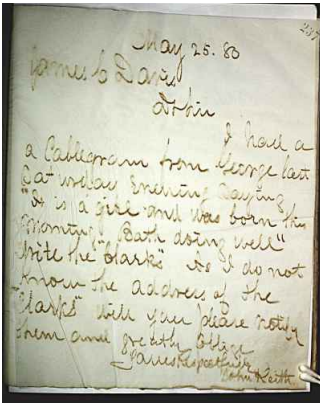 237
May 25. 80
James C Davis
Dr Sir
I had a
a Cablegram from George last
Saturday Evening saying
"It is a girl and was born this
morning" Both doing well"
Write the "Clarks" As I do not
know the address of the
"Clarks" will you please notify
them and greatly oblige
Yours Respectfully
John Keith.